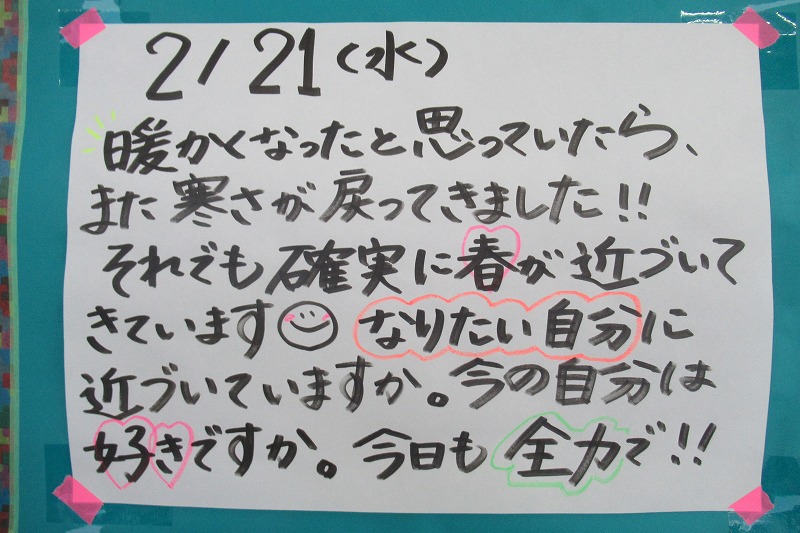 2/21(水)
暖かくなったと思っていたら、
また寒さが戻ってきました!!
それでも確実に春が近づいて
きています なりたい自分に
近づいていますか。今の自分は
好きですか。今日も全力で!!